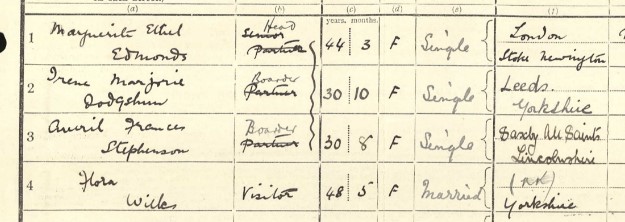 (a) (b) (c) (d) (e) (f)
years. months.
1 Marguerite Ethel Edmonds Head Senior Partner 44 3 F Single London Stoke Newington
2 Irene Marjorie Dodgshun Boarder Partner 30 10 F Single Leeds. Yorkshire
3 Averil Frances Stephenson Boarder Partner 30 8 F Single Saxby All Saints Lincolnshire
4 Flora Wilks Visitor 48 5 F Married (NK) Yorkshire